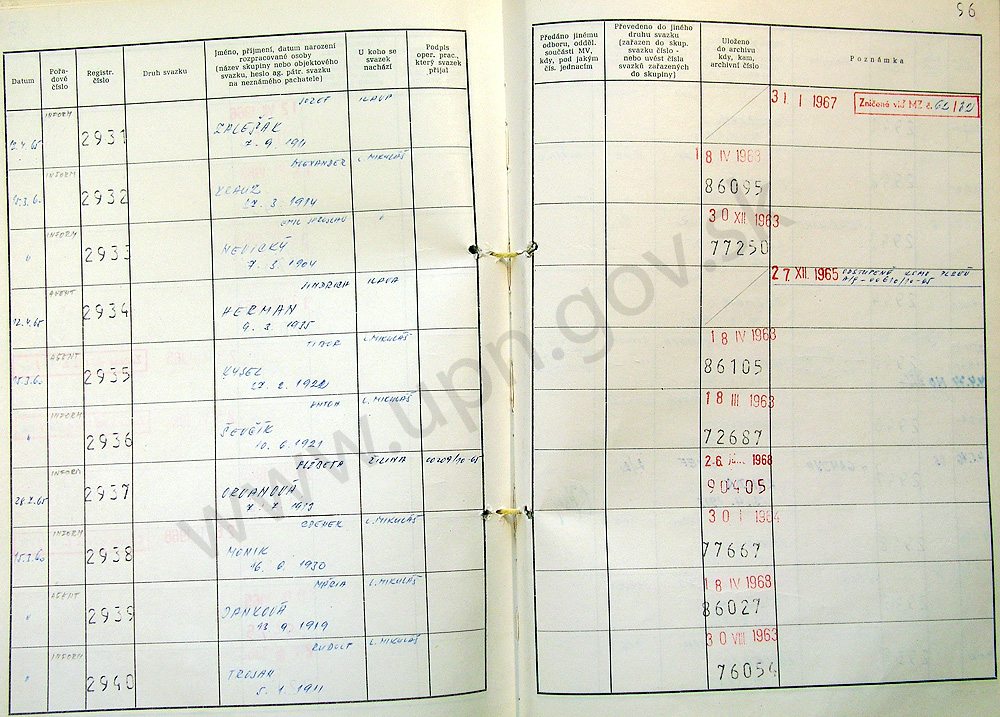 96
Datum
Pořadové číslo
Registr. číslo
Druh svazku
Jméno, příjmení, datum narození
rozpracované osoby
(název skupiny nebo objektového
svazku, heslo ag. pátr. svazku
na neznámého pachatele)
U koho se
svazek
nachází
Podpis
oper. prac.,
který svazek
přijal
Předáno jinému
odboru, odděl.
součásti MV,
kdy, pod jakým
čís. jednacím
Převedeno do jiného
druhu svazku
(zařazen do skup.
svazku číslo -
nebo uvést čísla
svazků zařazených
do skupiny)
Uloženo
do archivu
kdy, kam,
archivní číslo
Poznámka
INFORM JOZEF ILAVA
2931 ZALEŠÁK
7. 9. 1911
31 I 1967 Zničené viď MZ č.
INFORM ALEXANDER L. MIKULÁŠ
15.3.60 2932
27. 3. 1914
18 IV 1963
86095
INFORM EMIL JAROSLAV "
" 2933 NEVICKÝ
7. 3. 1904
30 XII 1963
77250
AGENT JINDRICH ILAVA
12.4.65 2934 HERMAN
9. 2. 1935
27. XII. 1965
AGENT TIBOR L. MIKULÁŠ
15.3.60 2935 KYSEL
27. 2. 1922
18 IV 1963
86105
INFORM ANTON L. MIKULÁŠ
" 2936 ŠEVČÍK
10. 6. 1921
18 III 1963
72687
INFORM ALŽBETA ŽILINA
2937 ORVANOVÁ
90405
INFORM L. MIKULÁŠ
15.3.60 2938 MONIK
16. 6. 1930
30 I 1964
77667
AGENT MÁRIA L. MIKULÁŠ
" 2939 JANKOVÁ
13 9. 1919
18 IV 1963
86027
INFORM RUDOLF L. MIKULÁŠ
" 2940 TROJAN
5. 1 1911
30 VIII 1963
76054
www.upn.gov.sk